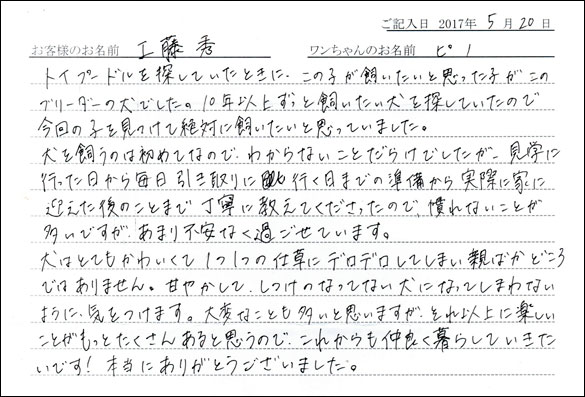 ご記入日 2017年 5月20日
お客様のお名前 工藤秀 ワンちゃんのお名前 ピノ
トイプードルを探していたときに、この子が飼いたいと思った子がこの
ブリーダーの犬でした。10年以上ずっと飼いたい犬を探していたので
今回の子を見つけて絶対に飼いたいと思っていました。
犬を飼うのは初めてなので、わからないことだらけでしたが、見学に
行った日から毎日引き取りに行く日までの準備から実際に家に
迎えた後のことまで丁寧に教えてくださったので、慣れないことが
多いですが、あまり不安なく過ごせています。
犬はとてもかわいくて1つ1つの仕草にデロデロしてしまい親ばかどころ
ではありません。甘やかして、しつけのなってない犬になってしまわない
ように、気をつけます。大変なことも多いと思いますが、それ以上に楽しい
ことがもっとたくさんあると思うので、これからも仲良く暮らしていきた
いです!本当にありがとうございました。